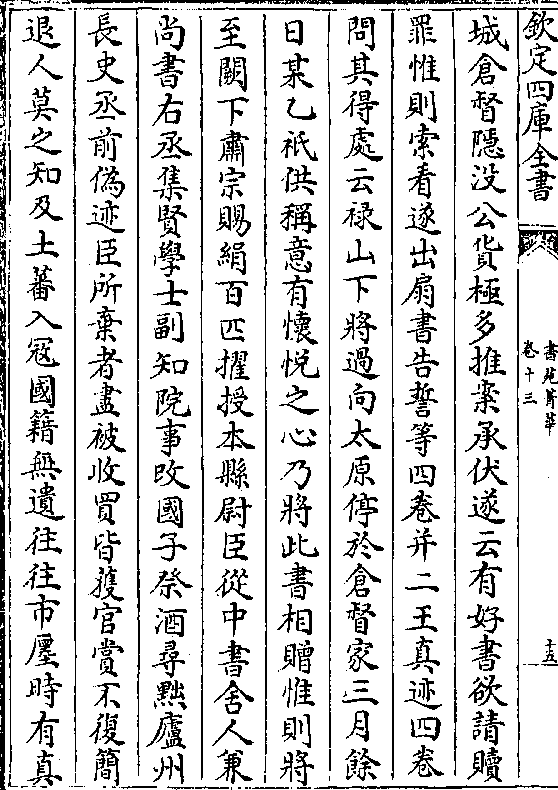 欽定四庫全書
書苑菁華
卷十三
十五
城倉督隱没公貨極多推案承伏遂云有好書欲請贖
罪惟則索看遂出扇書告誓等四卷并二王真迹四卷
問其得處云禄山下將過向太原停於倉督家三月餘
日某乙祇供稱意有懷悦之心乃將此書相贈惟則將
至闕下肅宗賜絹百匹擢授本縣尉臣從中書舍人兼
尚書右丞集賢學士副知院事改國子祭酒尋黜廬州
長史丞前偽迹臣所棄者盡被收買皆獲官賞不復簡
退人莫之知及土蕃入寇國籍無遺往往市廛時有真